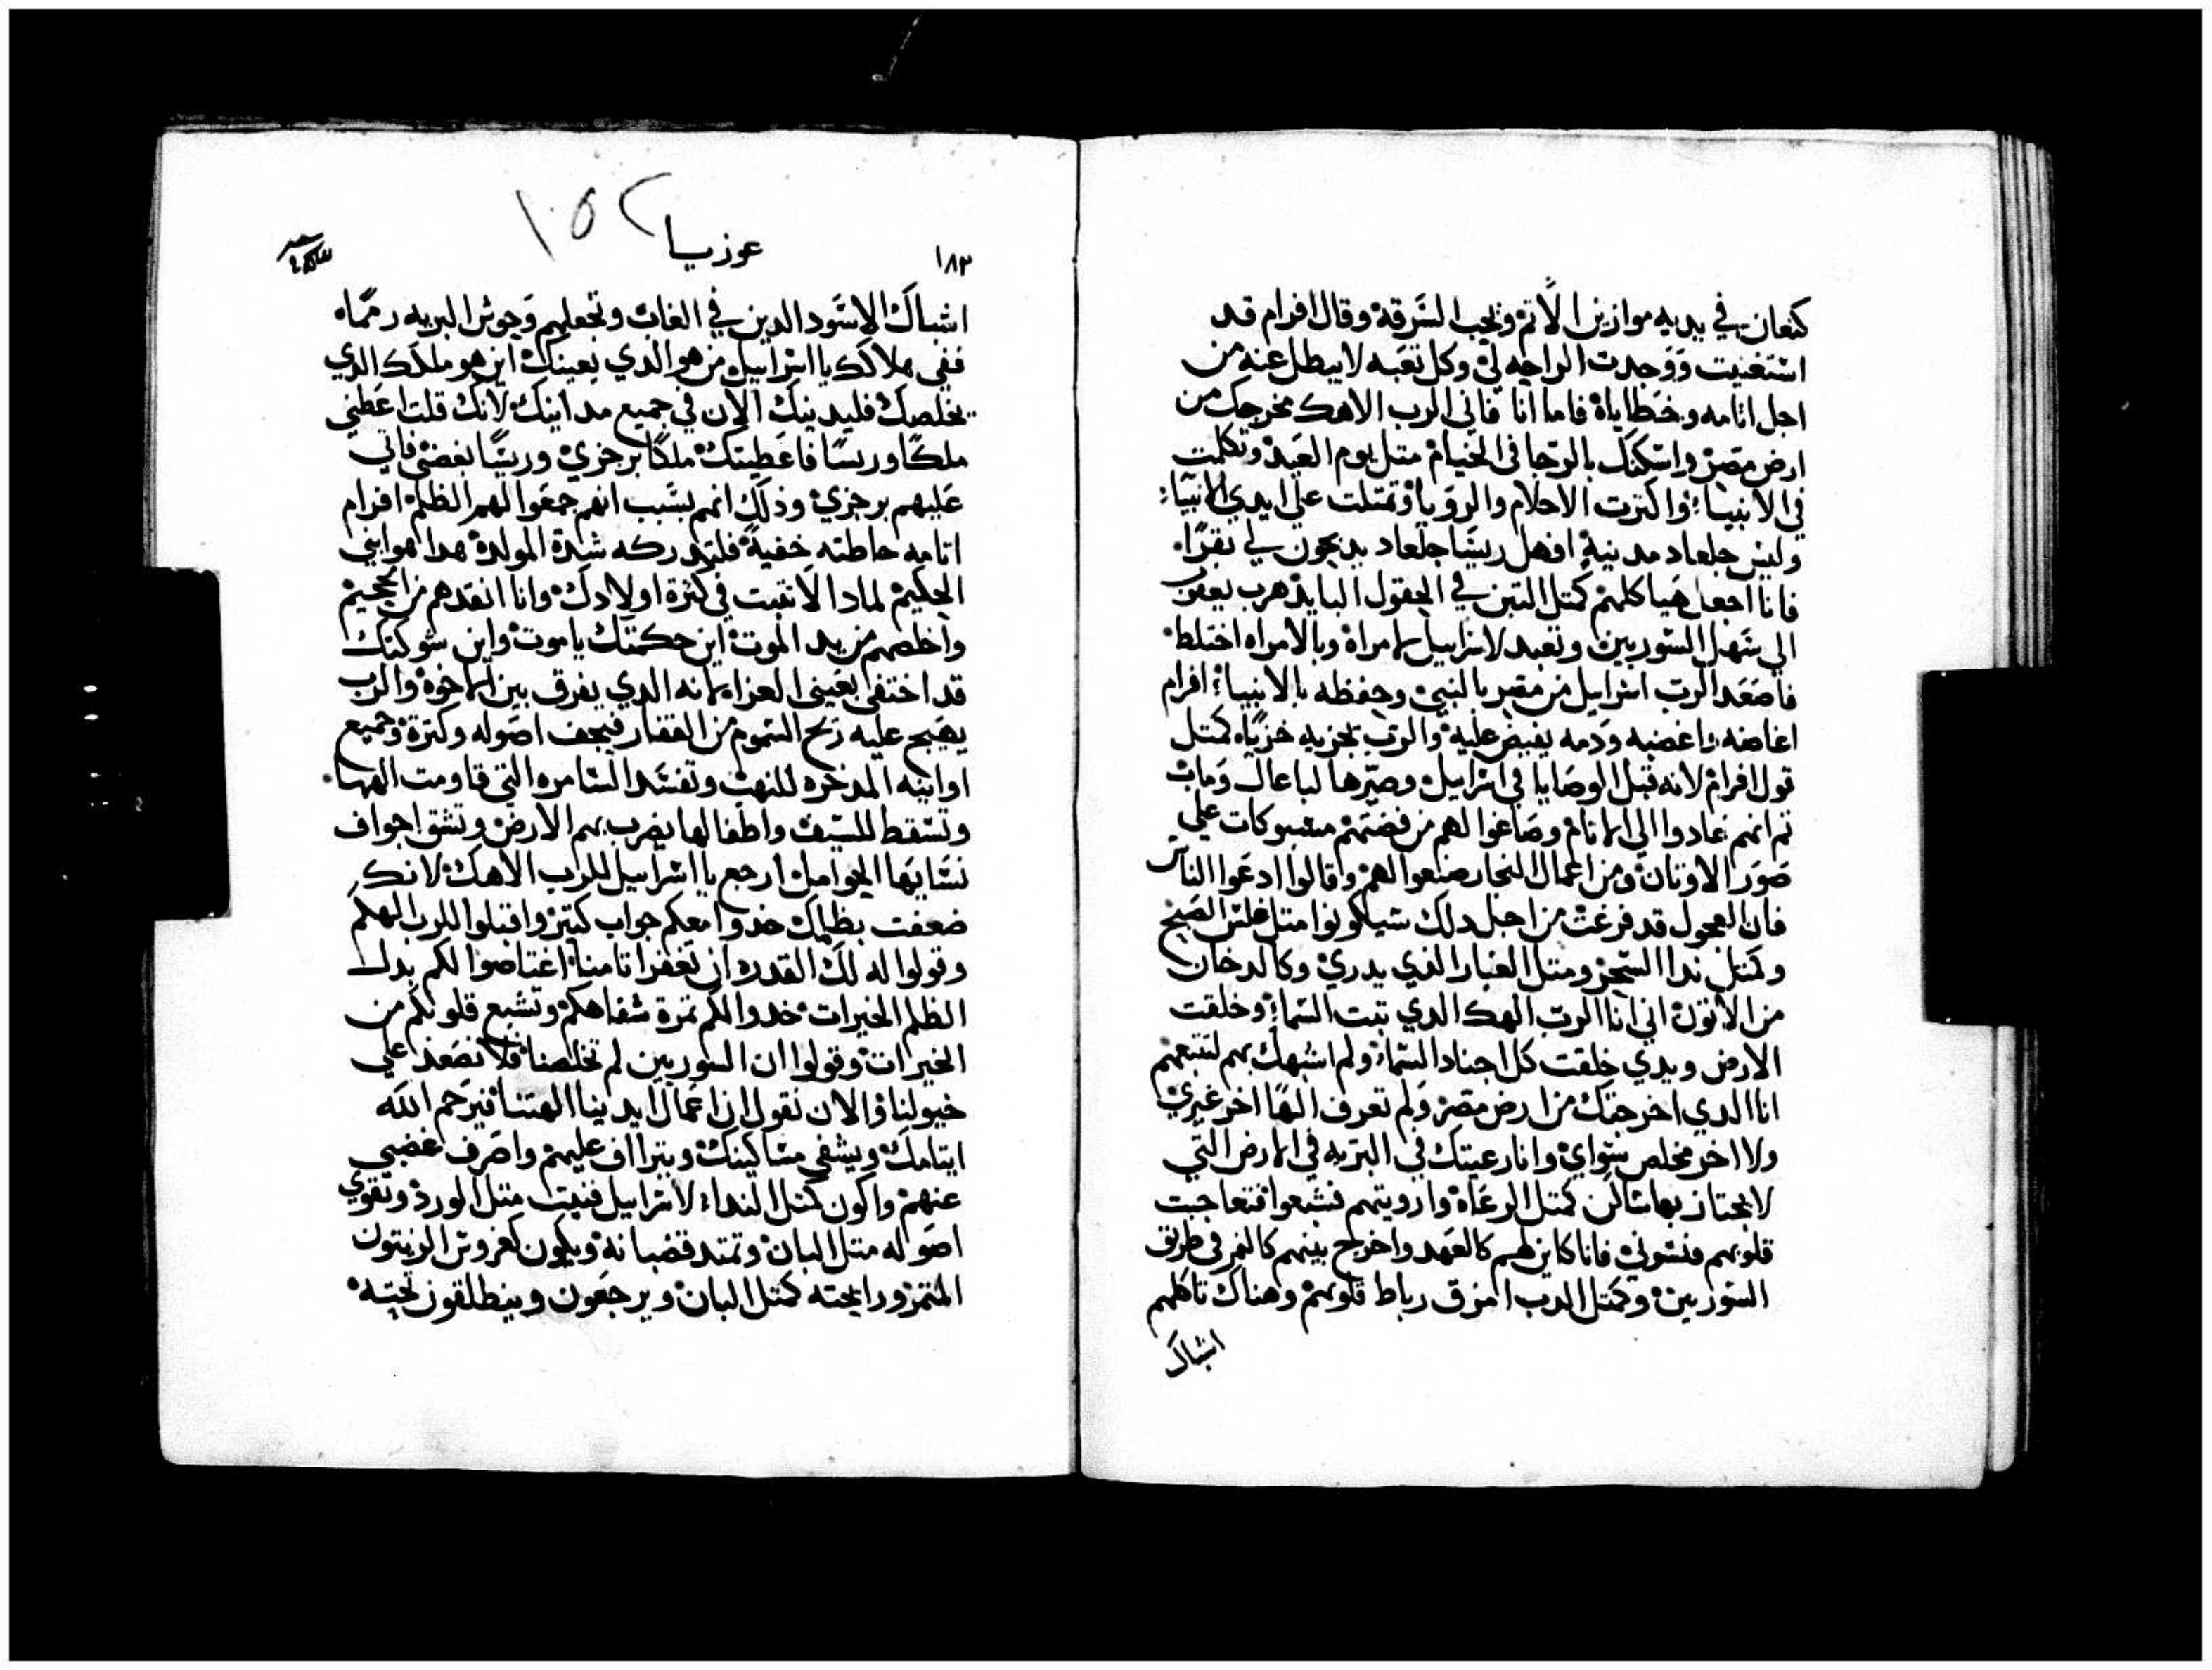 كنعان في يديه موازين الاتم ويحب السرقة وقال افرام قد
استغنيت ووجدت الراحه لي وكل تعبه لا يبطل عنه من
اجل اتامه وخطاياه فاما انا فاني الرب الاهك مخرجك من
ارض مصر واسكنك بالرجا في الخيام متل يوم العيد وتكلمت
في الانبيا واكترت الاحلام والرويا وتمتلت علي ايدي الانبيا
وليس جلعاد مدينة افهل ريسا جلعاد يدبحون لي بقرا
فانا اجعل هياكلهم كمتل التبن في الحقول البايد هرب يعقوب
الي سهل السوريين وتعبد لاسراييل لامراه وبالامراه اختلط
فاصعد الرب اسراييل من مصر بالنبي وحفظه بالانبيا افرام
اغاضه واغضبه ودمه يفيض عليه والرب يجزيه خزياه كمتل
قول افرام لانه قبل الوصايا في اسراييل وصيرها لباعال ومات
تم انهم عادوا الي الاتام وصاغوا لهم من فضتهم مسبوكات علي
صور الاوتان ومن اعمال النجار صنعوا لهم وقالوا ادعوا الناس
فان العجول قد فرغت من اجل دلك سيكونوا متل غلس الصبح
وكمتل ندا السحر ومتل الغبار الذي يدري وكالدخان
من الاتون اني انا الرب الهك الدي تبت السما وخلقت
الارض ويدي خلقت كل اجناد السما ولم اشبهك بهم لتتبعهم
انا الدي اخرجتك من ارض مصر ولم تعرف الها اخر غيري
ولا اخر مخلص سواي وانا رعيتك في البريه في الارض التي
لا يجتاز بها ساكن كمتل الرعاه وارويتهم فشبعوا فتعاجبت
قلوبهم فنسوني فانا كاين لهم كالفهد واخرج بينهم كالنمر في طريق
السوريين وكمتل الدب امزق رباط قلوبهم وهناك تاكلهم
اشباك
١٨٣
عوزيا
١٥٢
اشباك الاسود الدين في الغاب وتجعلهم وحوش البريه رمماه
ففي هلاكك يا اسراييل من هو الدي يعينك اين هو ملكك الدي
يخلصك فليدينك الان في جميع مداينك لانك قلت اعطني
ملكا وريسا فاعطيتك ملكا برجزي وريسا بغضبي فاني
عليهم برجزي وذلك انهم بسبب انهم جمعوا لهم الظلم افرام
اتامه حاطته خفية فلتدركه شدة المولدة هدا هو ابني
الحكيم لمادا لا تتبت في كترة اولادك وانا انقدهم من الجحيم
واخلصهم من يد الموت اين حكمتك يا موت واين شوكتك
قد اختفي بعيني العزا لانه الدي يفرق بين الاخوة والرب
يهيج عليه ريح السموم من القفار فيجف اصوله وكترة وجميع
اوانيه المدخره للنهب وتفسد السامره التي قاومت الهها
وتسقط للسيف واطفالها يضرب بهم الارض وتشق اجواف
نسايها الحوامل ارجع يا اسراييل للرب الاهك لانك
ضعفت بظلمك خدوا معكم جواب كتير واقبلوا للرب الهكم
وقولوا له لك القدره ان تغفر اتامنا اعتاضوا لكم بدل
الظلم الخيرات خدوا لكم تمرة شفاهكم وتشبع قلوبكم من
الخيرات وقولوا ان السوريين لم تخلصنا فلا نصعد علي
خيولنا والان نقول ان اعمال ايدينا الهتنا فيرحم الله
ايتامك ويشفي مساكينك ويتراف عليهم واصرف غضبي
عنهم واكون كمتل الندا لاسراييل فنبت متل الورد وتقوي
اصوله متل اللبان وتمتد قضبانه ويكون كغروس الزيتون
المتمر ورايحته كمتل اللبان ويرجعون وينطلقون تحته